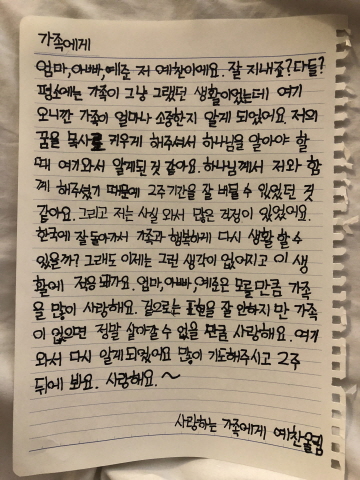 가족에게
엄마,아빠,예준 저 예찬이에요. 잘 지내죠? 다들?
평소에는 가족이 그냥 그랬던 생활이었는데 여기
오니깐 가족이 얼마나 소중한지 알게 되었어요. 저의
꿈을 목사로 키우게 해주셔서 하나님을 알아야 할
때 여기와서 알게된 것 같아요. 하나님께서 저와 함
께 해주셨기 때문에 2주 기간을 잘 버틸 수 있었던 것
같아요. 그리고 저는 사실 와서 많은 걱정이 있었어요.
한국에 잘 돌아가서 가족과 행복하게 다시 생활 할 수
있을까? 그래도 이제는 그런 생각이 없어지고 이 생
활에 적응 돼가요. 엄마, 아빠 예준은 모를만큼 가족
을 많이 사랑해요. 겉으로는 표현을 잘 안하지만 가족
이 없으면 정말 살아갈 수 없을 만큼 사랑해요. 여기
와서 다시 알게 되었어요 많이 기도해주시고 2주
뒤에 봐요. 사랑해요. ~
사랑하는 가족에게 예찬올림